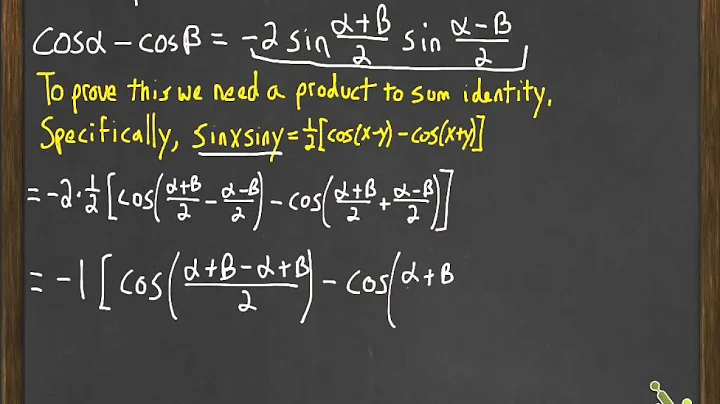 cosα - cosβ = -2 sin (α+β)/2 sin (α-β)/2
To prove this we need a product to sum identity.
Specifically, sinxsiny = 1/2[cos(x-y) - cos(x+y)]
= -2·1/2 [cos((α+β)/2 - (α-β)/2) - cos((α+β)/2 + (α-β)/2)]
= -1 [cos((α+β-α+β)/2) - cos(α+β